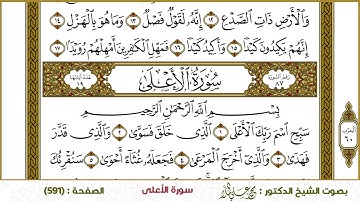 وَٱلْأَرْضِ ذَاتِ ٱلصَّدْعِ ١٢ إِنَّهُۥ لَقَوْلٌ فَصْلٌ ١٣ وَمَا هُوَ بِٱلْهَزْلِ ١٤
إِنَّهُمْ يَكِيدُونَ كَيْدًا ١٥ وَأَكِيدُ كَيْدًا ١٦ فَمَهِّلِ ٱلْكَٰفِرِينَ أَمْهِلْهُمْ رُوَيْدًۢا ١٧
سُورَةُ ٱلْأَعْلَىٰ
بِسْمِ ٱللَّهِ ٱلرَّحْمَٰنِ ٱلرَّحِيمِ
سَبِّحِ ٱسْمَ رَبِّكَ ٱلْأَعْلَى ١ ٱلَّذِى خَلَقَ فَسَوَّىٰ ٢ وَٱلَّذِى قَدَّرَ
فَهَدَىٰ ٣ وَٱلَّذِىٓ أَخْرَجَ ٱلْمَرْعَىٰ ٤ فَجَعَلَهُۥ غُثَآءً أَحْوَىٰ ٥ سَنُقْرِئُكَ
بصوت الشيخ الدكتور :
سورة الأعلى
الصفحة : (591)